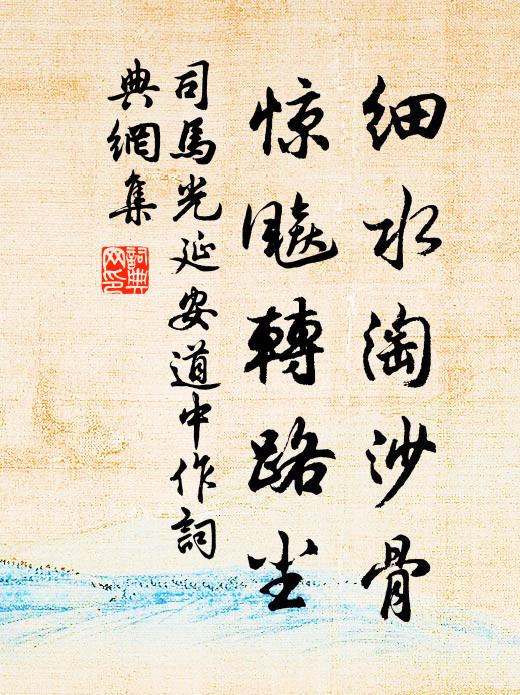 细水淘沙骨
惊飚轉路尘
司馬光延安道中作詞
典網集
詞典
网印